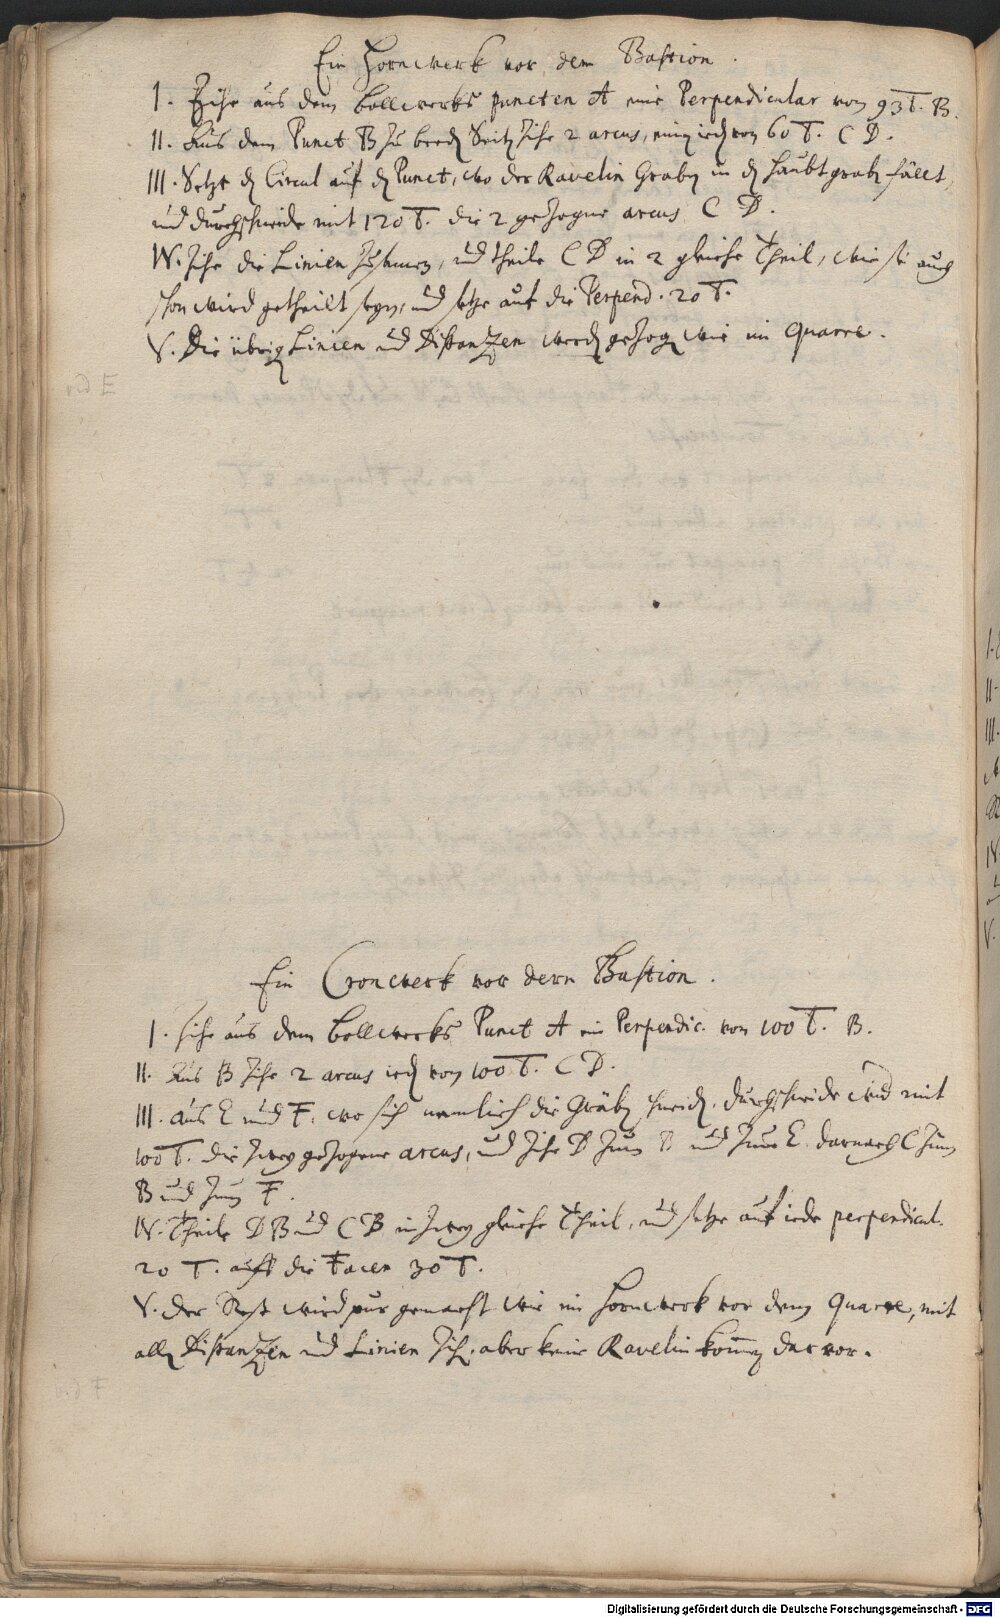 Ein Hornwerk vor dem Bastion.
I. Zihe aus dem bollwercks puncten A eine Perpendicular von 93 T. B.
II. Aus dem Punct B zu beeden Seiten zihe 2 arcus, einen ieden von 60 T. C D.
III. Setze den Circul auf den Punct, wo der Ravelin Graben in den haubtgraben fällt,
und durchschneide mit 120 T. die 2 gezogene arcus C D.
IV. Zihe die Linien zusamen, und theile C D in 2 gleiche Theil, wie sie auch
schon wird getheilt seyn, und setze auf die Perpend. 20 T.
V. Die übrigen Linien und Distanzen werden gezogen wie im Quarre.
Ein Cronwerk vor dem Bastion.
I. Zihe aus dem bollwercks Punct A ein Perpendic. von 100 T. B.
II. Aus B zihe 2 arcus ieden von 100 T. C D.
III. Aus E und F, wo sich nemlich die Gräben schneiden, durchschneide wid mit
100 T. die zwey gezogene arcus, und zihe D zum B und zum E. darnach C zum
B und zum F.
IV. Theile D B und C B in zwey gleiche Theil, und setze auf iede perpendicul.
20 T. auff die Facen 30 T.
V. Der Rest wird pur gemacht wie im Hornwerk vor dem Quarre, mit
allen Distanzen und Linien, aber keine Ravelin kommen darvor.
Digitalisierung gefördert durch die Deutsche Forschungsgemeinschaft - DFG